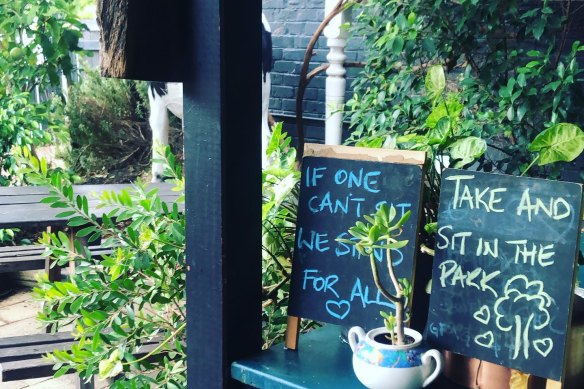 IF ONE
CAN'T SIT
WE STAND
FOR ALL
TAKE AND
SIT IN THE
PARK